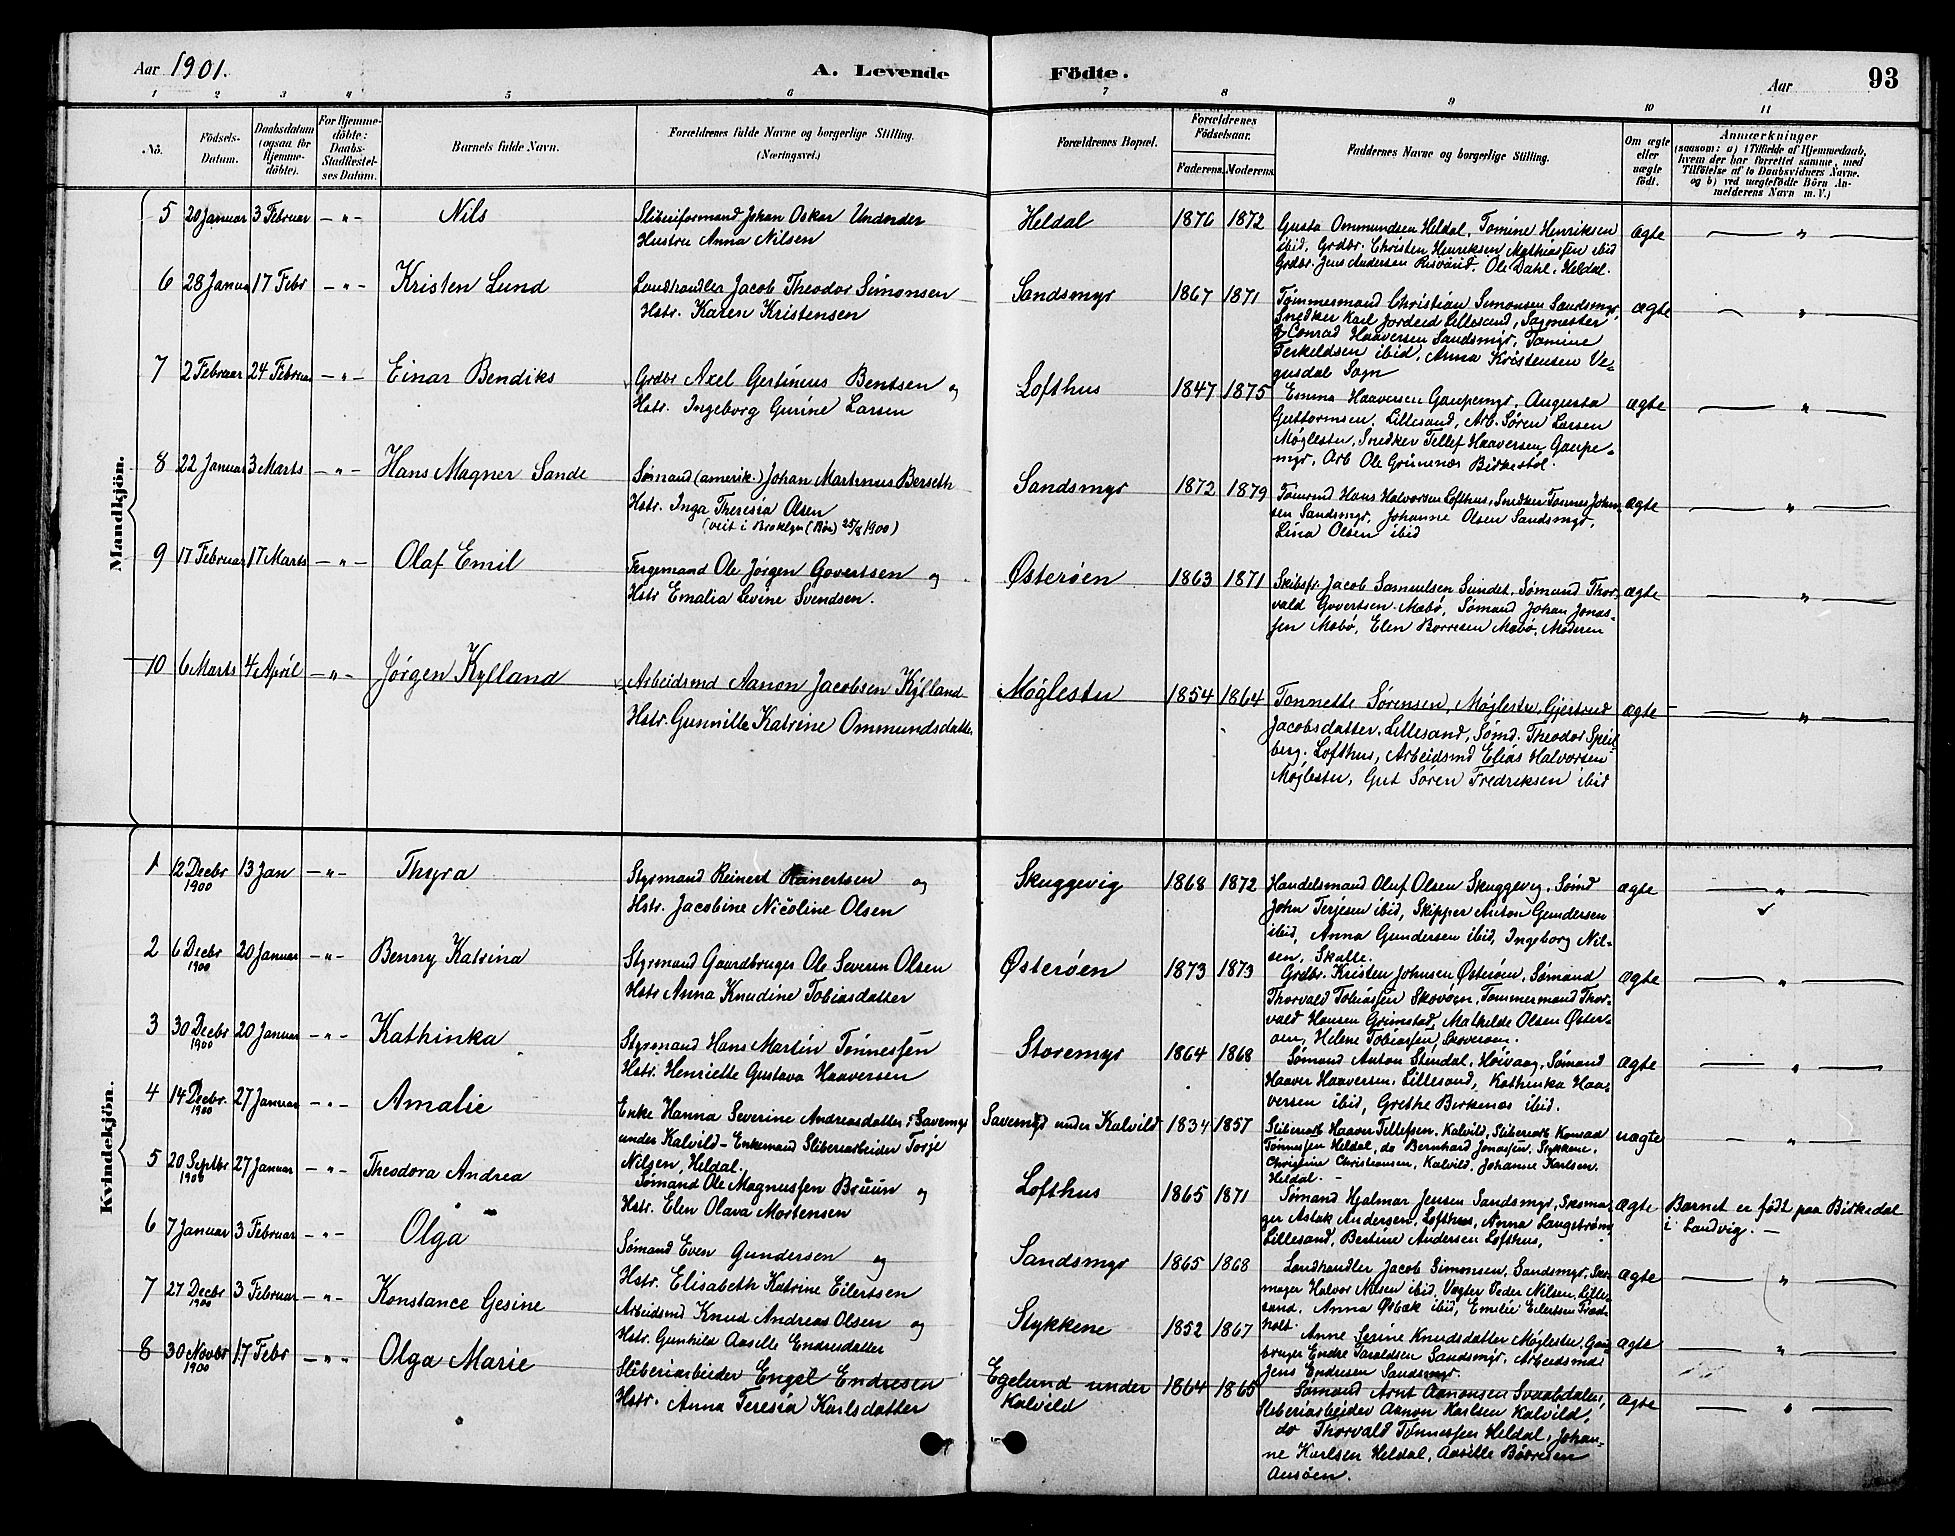 Aar 1901.
A. Levende
Födte.
Aar
93
1 2 3 4 5 6 7 8 9 10 11
No.
Födsels-
Datum.
Daabsdatum
(ogsaa for
Hjemme-
döbte).
For Hjemme-
döbte:
Daabs-
Stadfæstel-
ses Datum.
Barnets fulde Navn.
Forældrenes fulde Navne og borgerlige Stilling.
(Næringsvei.)
Forældrenes Bopæl.
Forældrenes
Födselsaar.
Faderens. Moderens.
Faddernes Navne og borgerlige Stilling.
Om ægte
eller
uægte
födt.
Anmærkninger
(saasom: a) i Tilfælde af Hjemmedaab,
hvem der har forrettet samme, med
Tilföielse af to Daabsvidners Navne.
og b) ved uægtefödte Börn An-
melderens Navn m. V.)
Mandkjön.
5 20 Januar 3 Februar — " — Nils
Sliberiformand Johan Oskar Undander
Hustru Anna Nilsen
Heldal 1870 1872
Gusta Ommundsen Heldal, Tomine Henriksen
ibid, Grdbr. Christen Henriksen Mathiassen ibid
Grdbr. Jens Andersen Risvand, Ole Dahl, Heldal.
ægte — " —
6 28 Januar 17 Febr — " — Kristen Lund
Landhandler Jacob Theodor Simonsen
Hstr. Karen Kristensen
Sandsmyr 1867 1871
Tømmermand Christian Simonsen Sandsmyr,
Snedker Karl Jordeid Lillesand, Sagmester
Conrad Haaversen Sandsmyr, Tomine
Terkeldsen ibid, Anna Kristensen Ve-
gusdal Sogn
ægte — " —
7 2 Februar 24 Februar — " — Einar Bendiks
Grdbr Axel Gertinius Bentsen og
Hstr. Ingeborg Gurine Larsen
Lofthus 1847 1875
Emma Haaversen Gaupemyr, Augusta
Guttormsen, Lillesand, Arb. Søren Larsen
Møglestu, Snedker Tellef Haaversen Gaupe-
myr, Arb Ole Grimenæs Birkestøl.
ægte — " —
8 22 Januar 3 Marts — " — Hans Magner Sande
Sømand (amerik.) Johan Martinus Berseth
Hstr. Inga Theresia Olsen
(viet i Broklyn (Bos) 25/8 1900)
Sandsmyr 1872 1879
Tømrmd Hans Halvorsen Lofthus, Snedker Tønnes Johan-
sen Sandsmyr, Johanne Olsen Sandsmyr,
Lina Olsen ibid
ægte — " —
9 17 Februar 17 Marts — " — Olaf Emil
Færgemand Ole Jørgen Govertsen og
Hstr Emalia Levine Svendsen.
Østerøen 1863 1871
Skibsfr. Jacob Samuelsen Sundet, Sømand Thor-
vald Govertsen Mabø, Sømand Johan Jonas-
sen Mabø, Elen Børresen Mabø, Moderen
ægte — " —
10 6 Marts 4 April — " — Jørgen Kylland
Arbeidsmd Aanon Jacobsen Kylland
Hstr. Gunnille Katrine Ommundsdatter.
Møglestu 1854 1864
Tonnette Sørensen, Møglestu, Gjertrud
Jacobsdatter, Lillesand, Sømd. Theodor Speil-
berg. Lofthus, Arbeidsmd Elias Halvorsen
Møglestu, Gut Søren Fredriksen ibid
ægte — " —
Kvindekjön.
1 12 Decbr 1900 13 Jan — " — Thyra
Styrmand Reinert Reinertsen og
Hstr. Jacobine Nicoline Olsen
Skuggevig 1868 1872
Handelsmand Oluf Olsen Skuggevig, Sømd
John Terjesen ibid, Skipper Anton Gundersen
ibid, Anna Gundersen ibid, Ingeborg Nil-
sen, Skalle.
ægte — " —
2 6 Decbr 1900 20 Januar — " — Benny Katrina
Styrmand Gaardbruger Ole Severin Olsen
Hstr Anna Knudine Tobiasdatter
Østerøen 1873 1873
Grdbr. Kristen Johnsen Østerøen, Sømand
Thorvald Tobiassen Skovøen, Tømmermand Thor-
vald Hansen Grimstad, Mathilde Olsen Øster-
øen, Helene Tobiassen, Skoverøen.
ægte — " —
3 30 Decbr 1900 20 Januar — " — Kathinka
Styrmand Hans Martin Tønnessen
Hstr. Henriette Gustava Haaversen
Storemyr 1864 1868
Sømand Anton Stendal, Høivaag, Sømand
Haaver Haaversen, Lillesand, Kathinka Haa-
versen ibid, Grethe Birkenæs ibid.
ægte — " —
4 14 Decbr. 1900 27 Januar — " — Amalie
Enke Hanna Severine Andreasdatter, Savemyr
under Kalvild – Enkemand Sliberiarbeider Torje
Nilsen, Heldal.
Savemyr under Kalvild 1834 1857
Sliberiarb Haaver Tellefsen, Kalvild, Sliberiarb Konrad
Tønnessen Heldal, do Bernhard Jonassen, Stykkene,
Christine Christiansen, Kalvild, Johanne Karlsen,
Heldal. –
uægte — " —
5 20 Septbr 1900 27 Januar — " — Theodora Andrea
Sømand Ole Magnussen Bruun og
Hstr. Elen Olava Mortensen
Lofthus 1865 1871
Sømand Hjalmar Jensen Sandsmyr, Skoma-
ger Aslak Andersen, Lofthus, Anna Langstrøm,
Lillesand, Bertine Andersen Lofthus,
ægte
Barnet er født paa Birkedal
i Landvig. —
6 7 Januar 3 Februar — " — Olga
Sømand Even Gundersen og
Hstr. Elisabeth Katrine Eilertsen
Sandsmyr 1865 1868
Landhandler Jacob Simonsen, Sandsmyr, Sko-
mager Halvor Nilsen ibid, Vægter Peder Nilsen, Lille-
sand, Anna Østæk ibid, Emelie Eilertsen Fræd-
holt.
ægte — " —
7 27 Decbr 1900 3 Februar — " — Konstance Gesine
Arbeidsmd Knud Andreas Olsen og
Hstr. Gunhild Aaselle Endresdatter
Stykkene 1852 1867
Anne Serine Knudsdatter Møglestu, Gaard-
bruger Endre Taraldsen Sandsmyr, Arbeidsmd
Jens Endresen Sandsmyr.
ægte — " —
8 30 Novbr 1900 17 Febr — " — Olga Marie
Sliberiarbeider Engel Endresen
Hstr. Anna Teresia Karlsdatter
Egelund under
Kalvild 1864 1865
Sømand Arnt Aanonsen Svaabdalen,
Sliberiarbeider Aanon Karlsen Kalvild,
do Thorvald Tønnessen Heldal, Johan-
ne Karlsen Heldal, Aaselle Børresen
Aasøen.
ægte — " —